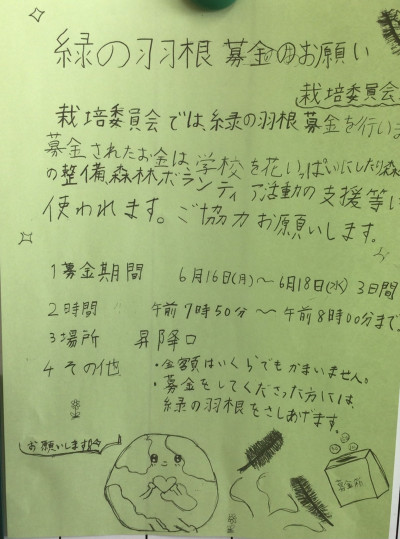 緑の羽根 募金のお願い
栽培委員会
栽培委員会では、緑の羽根募金を行いま
募金されたお金は、学校を花いっぱいにしたり森
の整備、森林ボランティア活動の支援等に
使われます。ご協力お願いします。
1 募金期間 6月16日(月)～6月18日(水) 3日間
2 時間 午前7時50分～午前8時00分まで
3 場所 昇降口
4 その他 ・金額はいくらでもかまいません。
・募金をしてくださった方には、
緑の羽根をさしあげます。
お願いします
募金箱